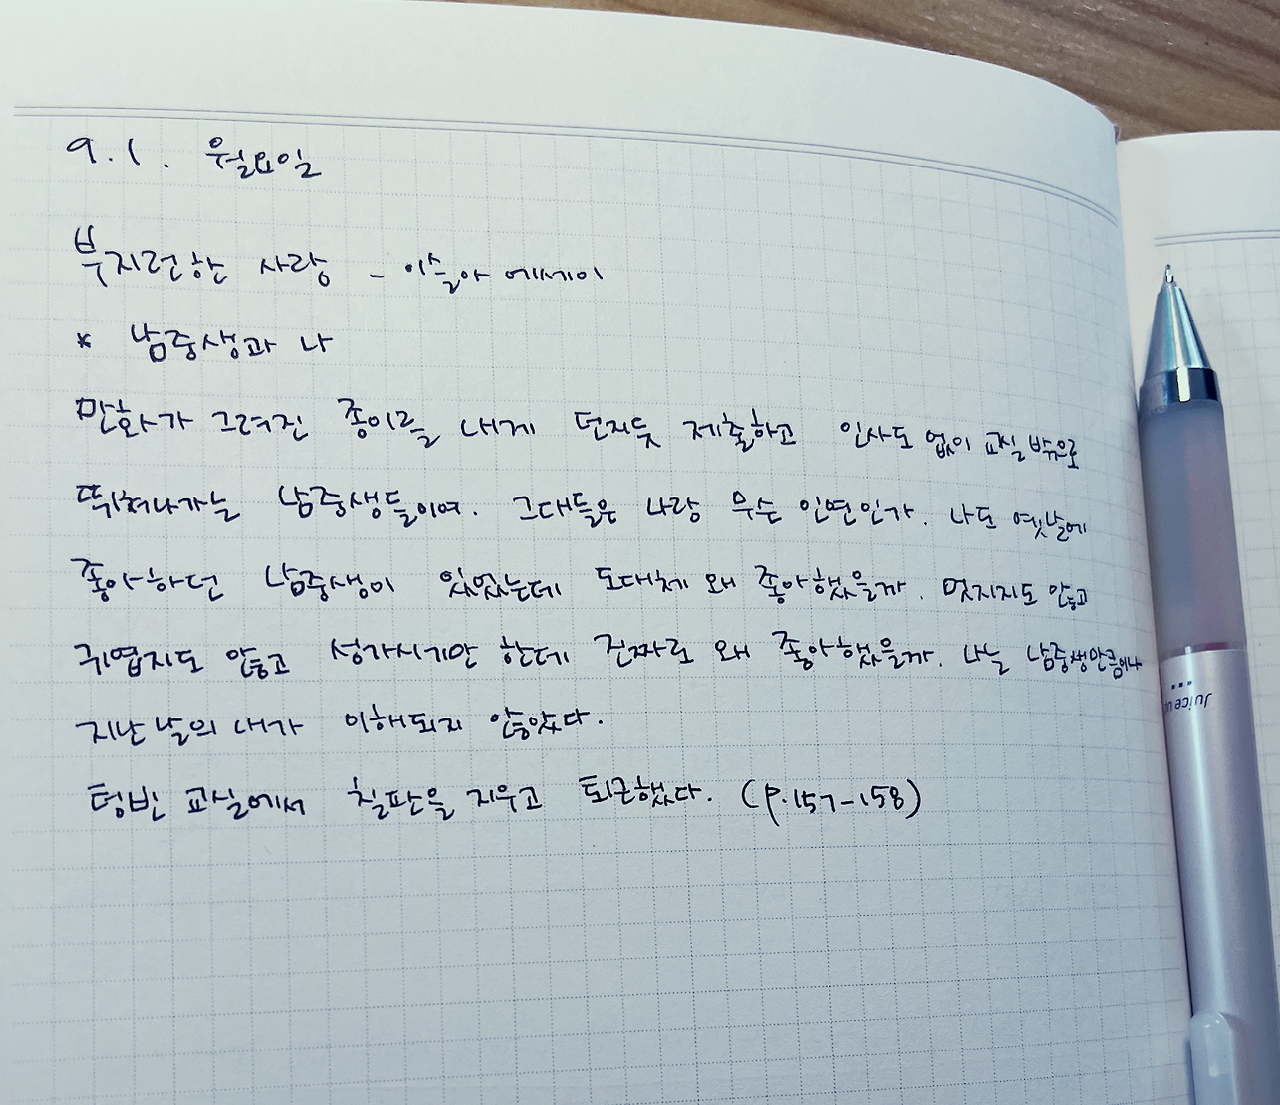 9.1. 월요일
부지런한 사랑 - 이슬아 에세이
* 남중생과 나
만화가 그려진 종이를 내게 던지듯 제출하고 인사도 없이 교실 밖으로
뛰쳐나가는 남중생들이여. 그대들은 나랑 무슨 인연인가. 나도 옛날에
좋아하던 남중생이 있었는데 도대체 왜 좋아했을까. 멋지지도 않고
귀엽지도 않고 성가시기만 한데 진짜로 왜 좋아했을까. 나는 남중생만큼이나
지난 날의 내가 이해되지 않았다.
텅빈 교실에서 칠판을 지우고 퇴근했다. (p.157-158)
Juice up